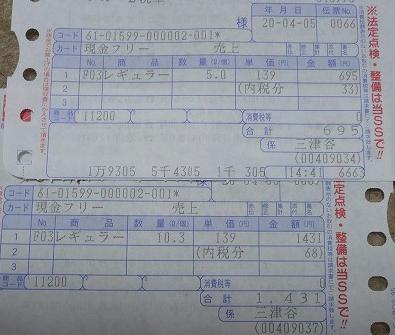 様
年 月 日 伝票No.
20-04-05 0066
コード 61-01599-000002-001*
カード 現金フリー 売上
商 品 数 量(数) 単 価(円) 金 額(円)
1 F03レギュラー 5.0 139 695
2 (内税分 33)
3
11200 消費税等 0
合 計 695
係 三津谷
(00409034)
1万9305 5千4305 1千 305 14:41 6663
※法定点検・整備は当SSで!!
コード 61-01599-000002-001*
カード 現金フリー 売上
商 品 数 量(数) 単 価(円) 金 額(円)
1 F03レギュラー 10.3 139 1431
2 (内税分 68)
3
11200 消費税等 0
合 計 1,431
係 三津谷
(00409037)
定点検・整備は当SSで!!